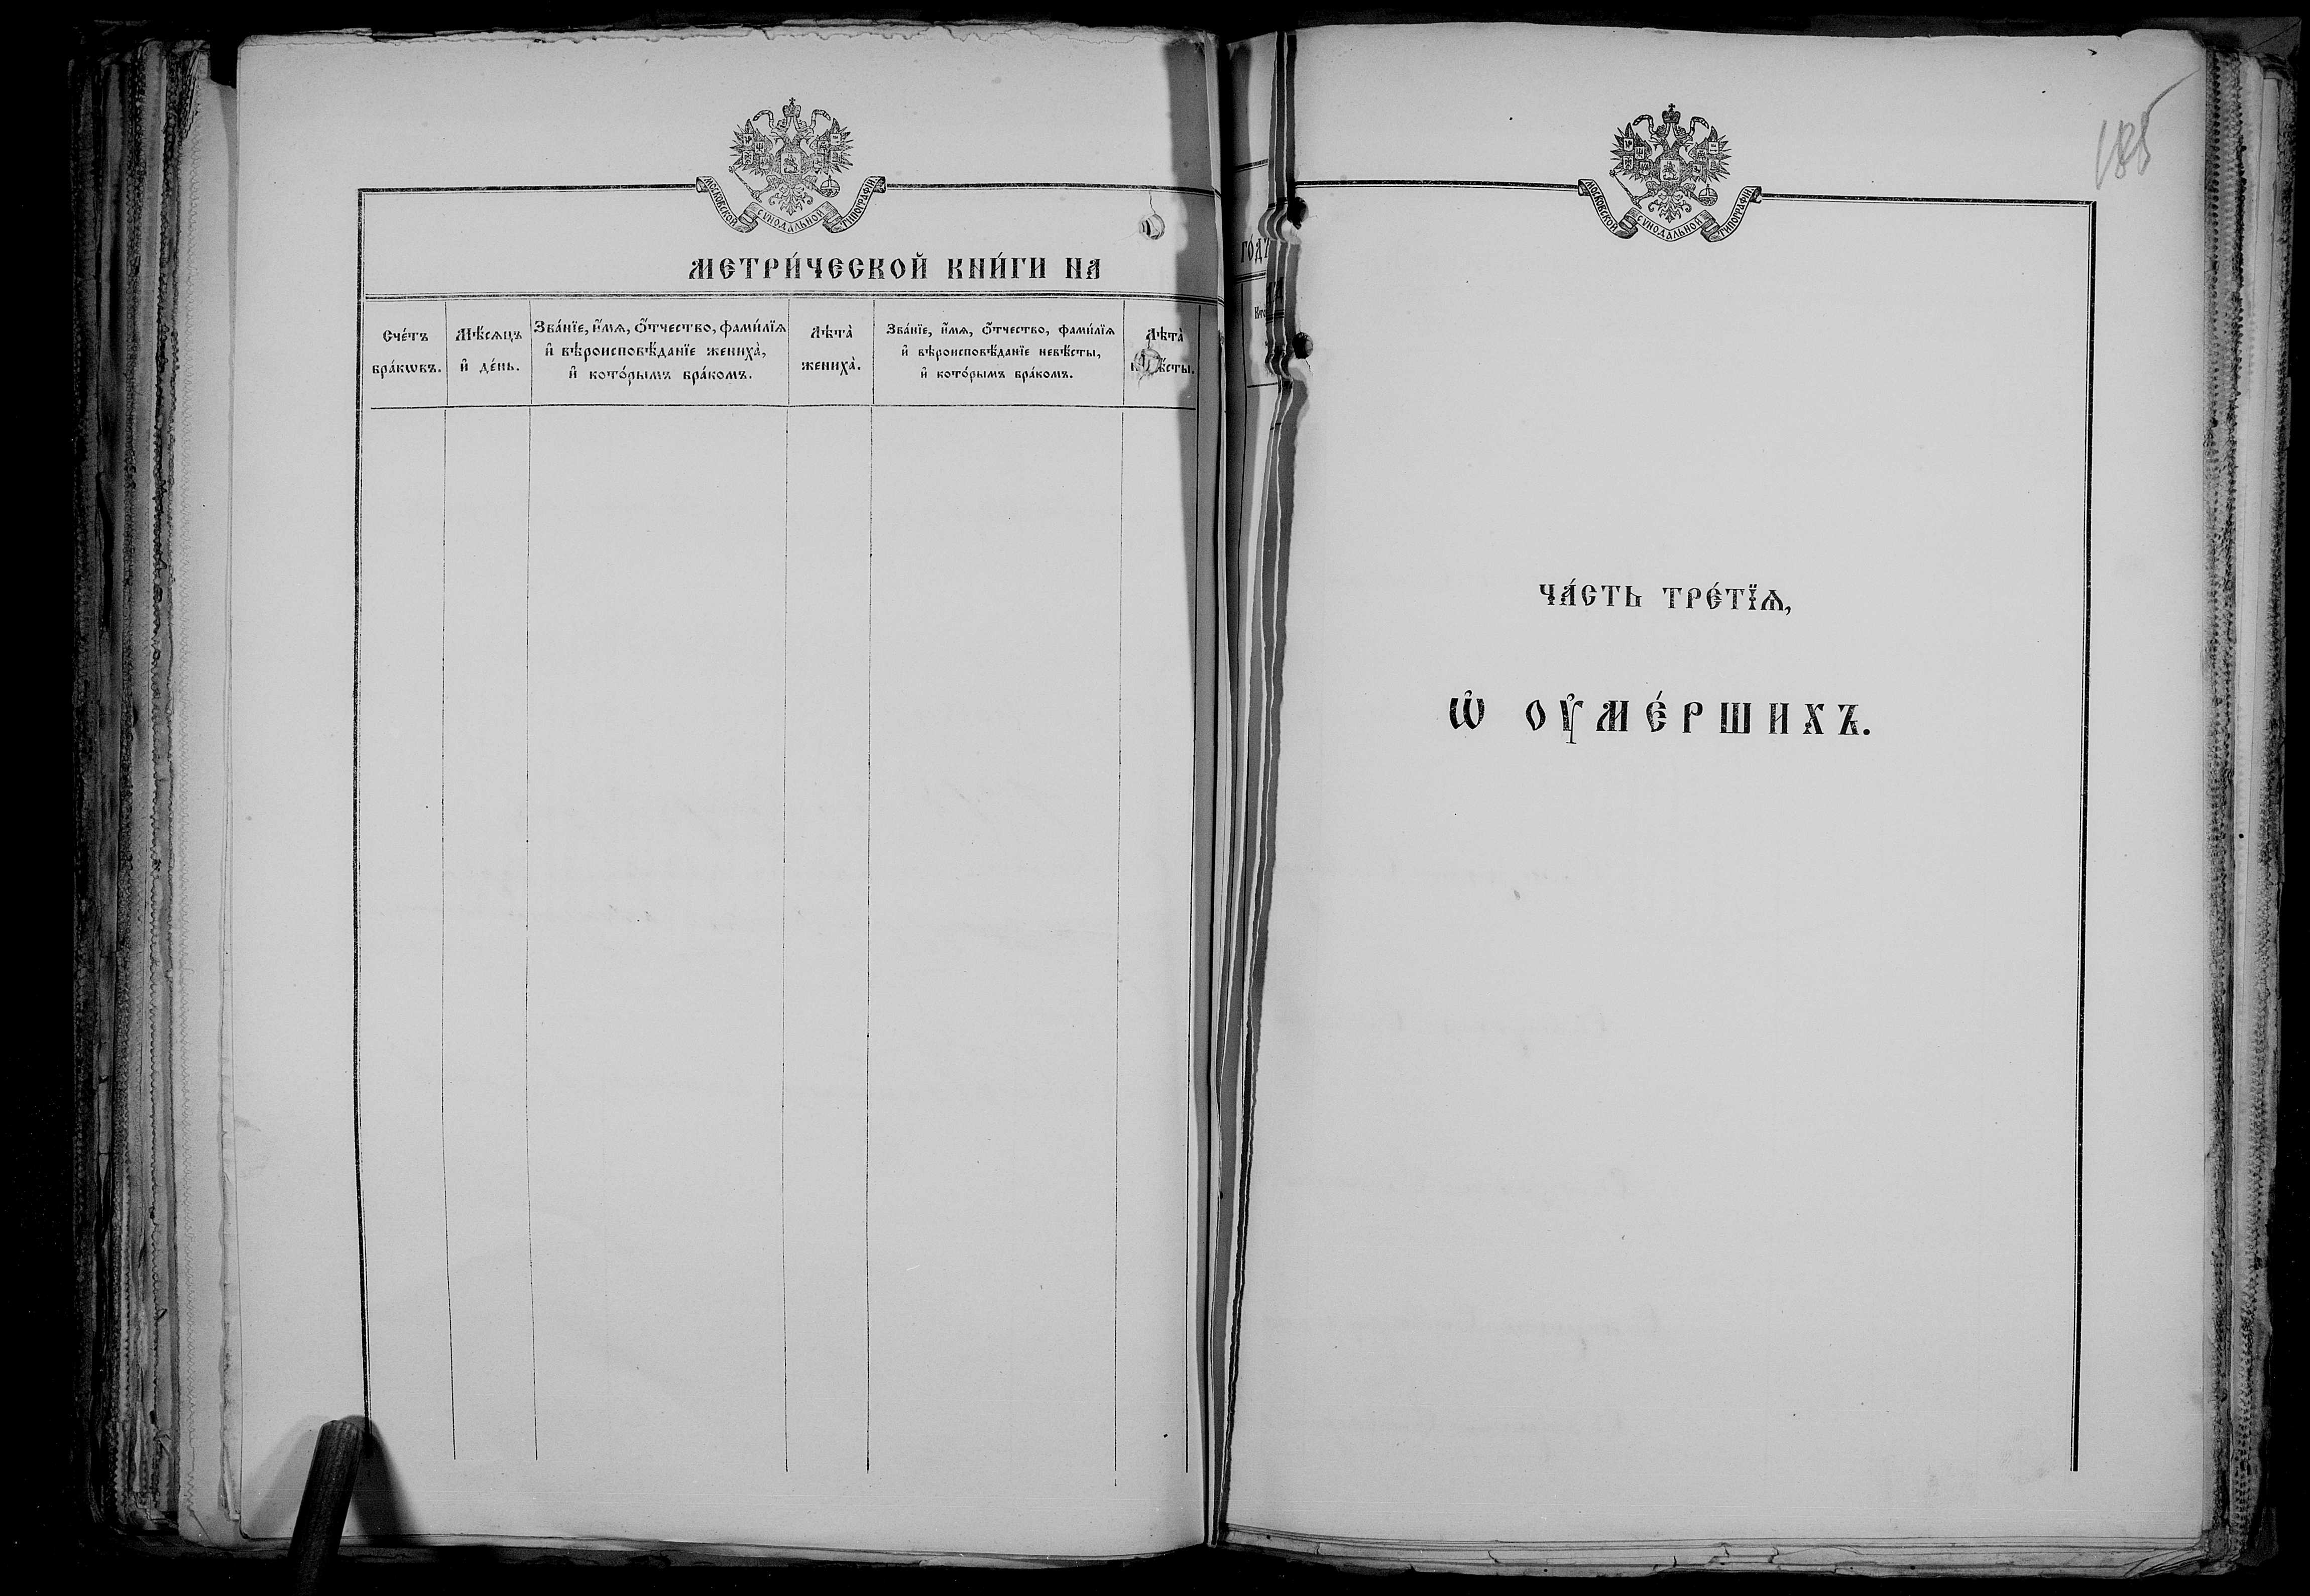 МОСКОВСКОЙ СѴНОДАЛЬНОЙ ТИПОГРАФІИ
МЕТРИ́ЧЕСКОЙ КНИ́ГИ НА
Сче́тъ бра́кѡвъ.
Мѣ́сяцъ и҆ де́нь.
Зва́нїе, и҆́мѧ, ѻ҆́тчество, фами́лїѧ
и҆ вѣроисповѣ́данїе жениха̀,
и҆ кото́рымъ бра́комъ.
Лѣта̀ жениха̀.
Зва́нїе, и҆́мѧ, ѻ҆́тчество, фами́лїѧ
и҆ вѣроисповѣ́данїе невѣ́сты,
и҆ кото́рымъ бра́комъ.
Лѣта̀
ГО́ДЪ
МОСКОВСКОЙ СѴНОДАЛЬНОЙ ТИПОГРАФІИ
185
ЧА́СТЬ ТРЕ́ТЇѦ,
Ѡ҆ ОУ҆МЕ́РШИХЪ.